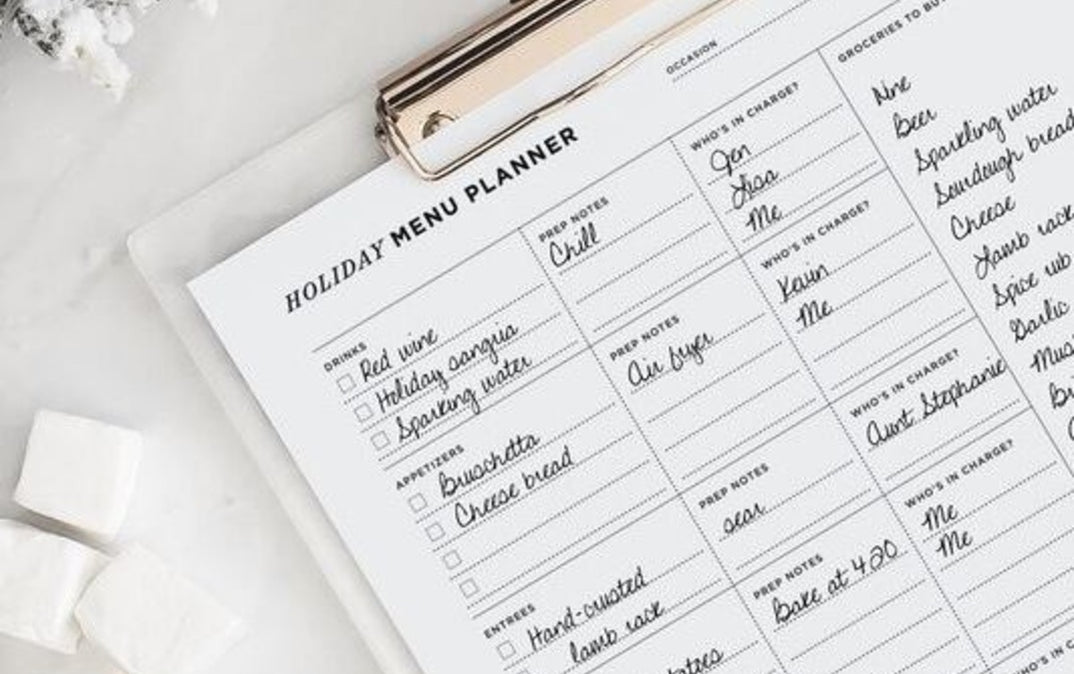 OCCASION
HOLIDAY MENU PLANNER
DRINKS
Red wine
Holiday sangria
Sparking water
PREP NOTES
Chill
WHO'S IN CHARGE?
Jen
Lisa
Me
APPETIZERS
Bruschetta
Cheese bread
PREP NOTES
Air fryer
WHO'S IN CHARGE?
Kevin
Me
ENTREES
Hand-crusted
lamb rack
PREP NOTES
sear
WHO'S IN CHARGE?
Aunt Stephanie
PREP NOTES
Bake at 420
WHO'S IN CHARGE?
Me
Me
GROCERIES TO
Beer
Sparkling water
Sourdough bread
Cheese
Lamb rack
Spice rub
Garlic